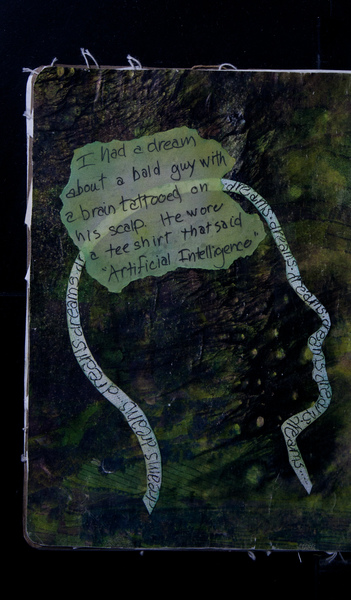 I had a dream
about a bald guy with
a brain tattooed on
his scalp. He wore
a tee shirt that said
"Artificial Intelligence."
dreams. dreams. dreams. dreams. dreams. dreams...
dreams. dreams. dreams. dreams. dreams